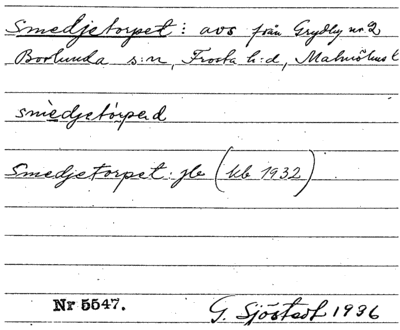 Smedjetorpet: avs från Grydby nr 2
Borlunda s:n, Frosta h:d, Malmöhus l
smèdjetòrped
Smedjetorpet: jb (kb 1932)
Nr 5547.
G. Sjöstedt 1936